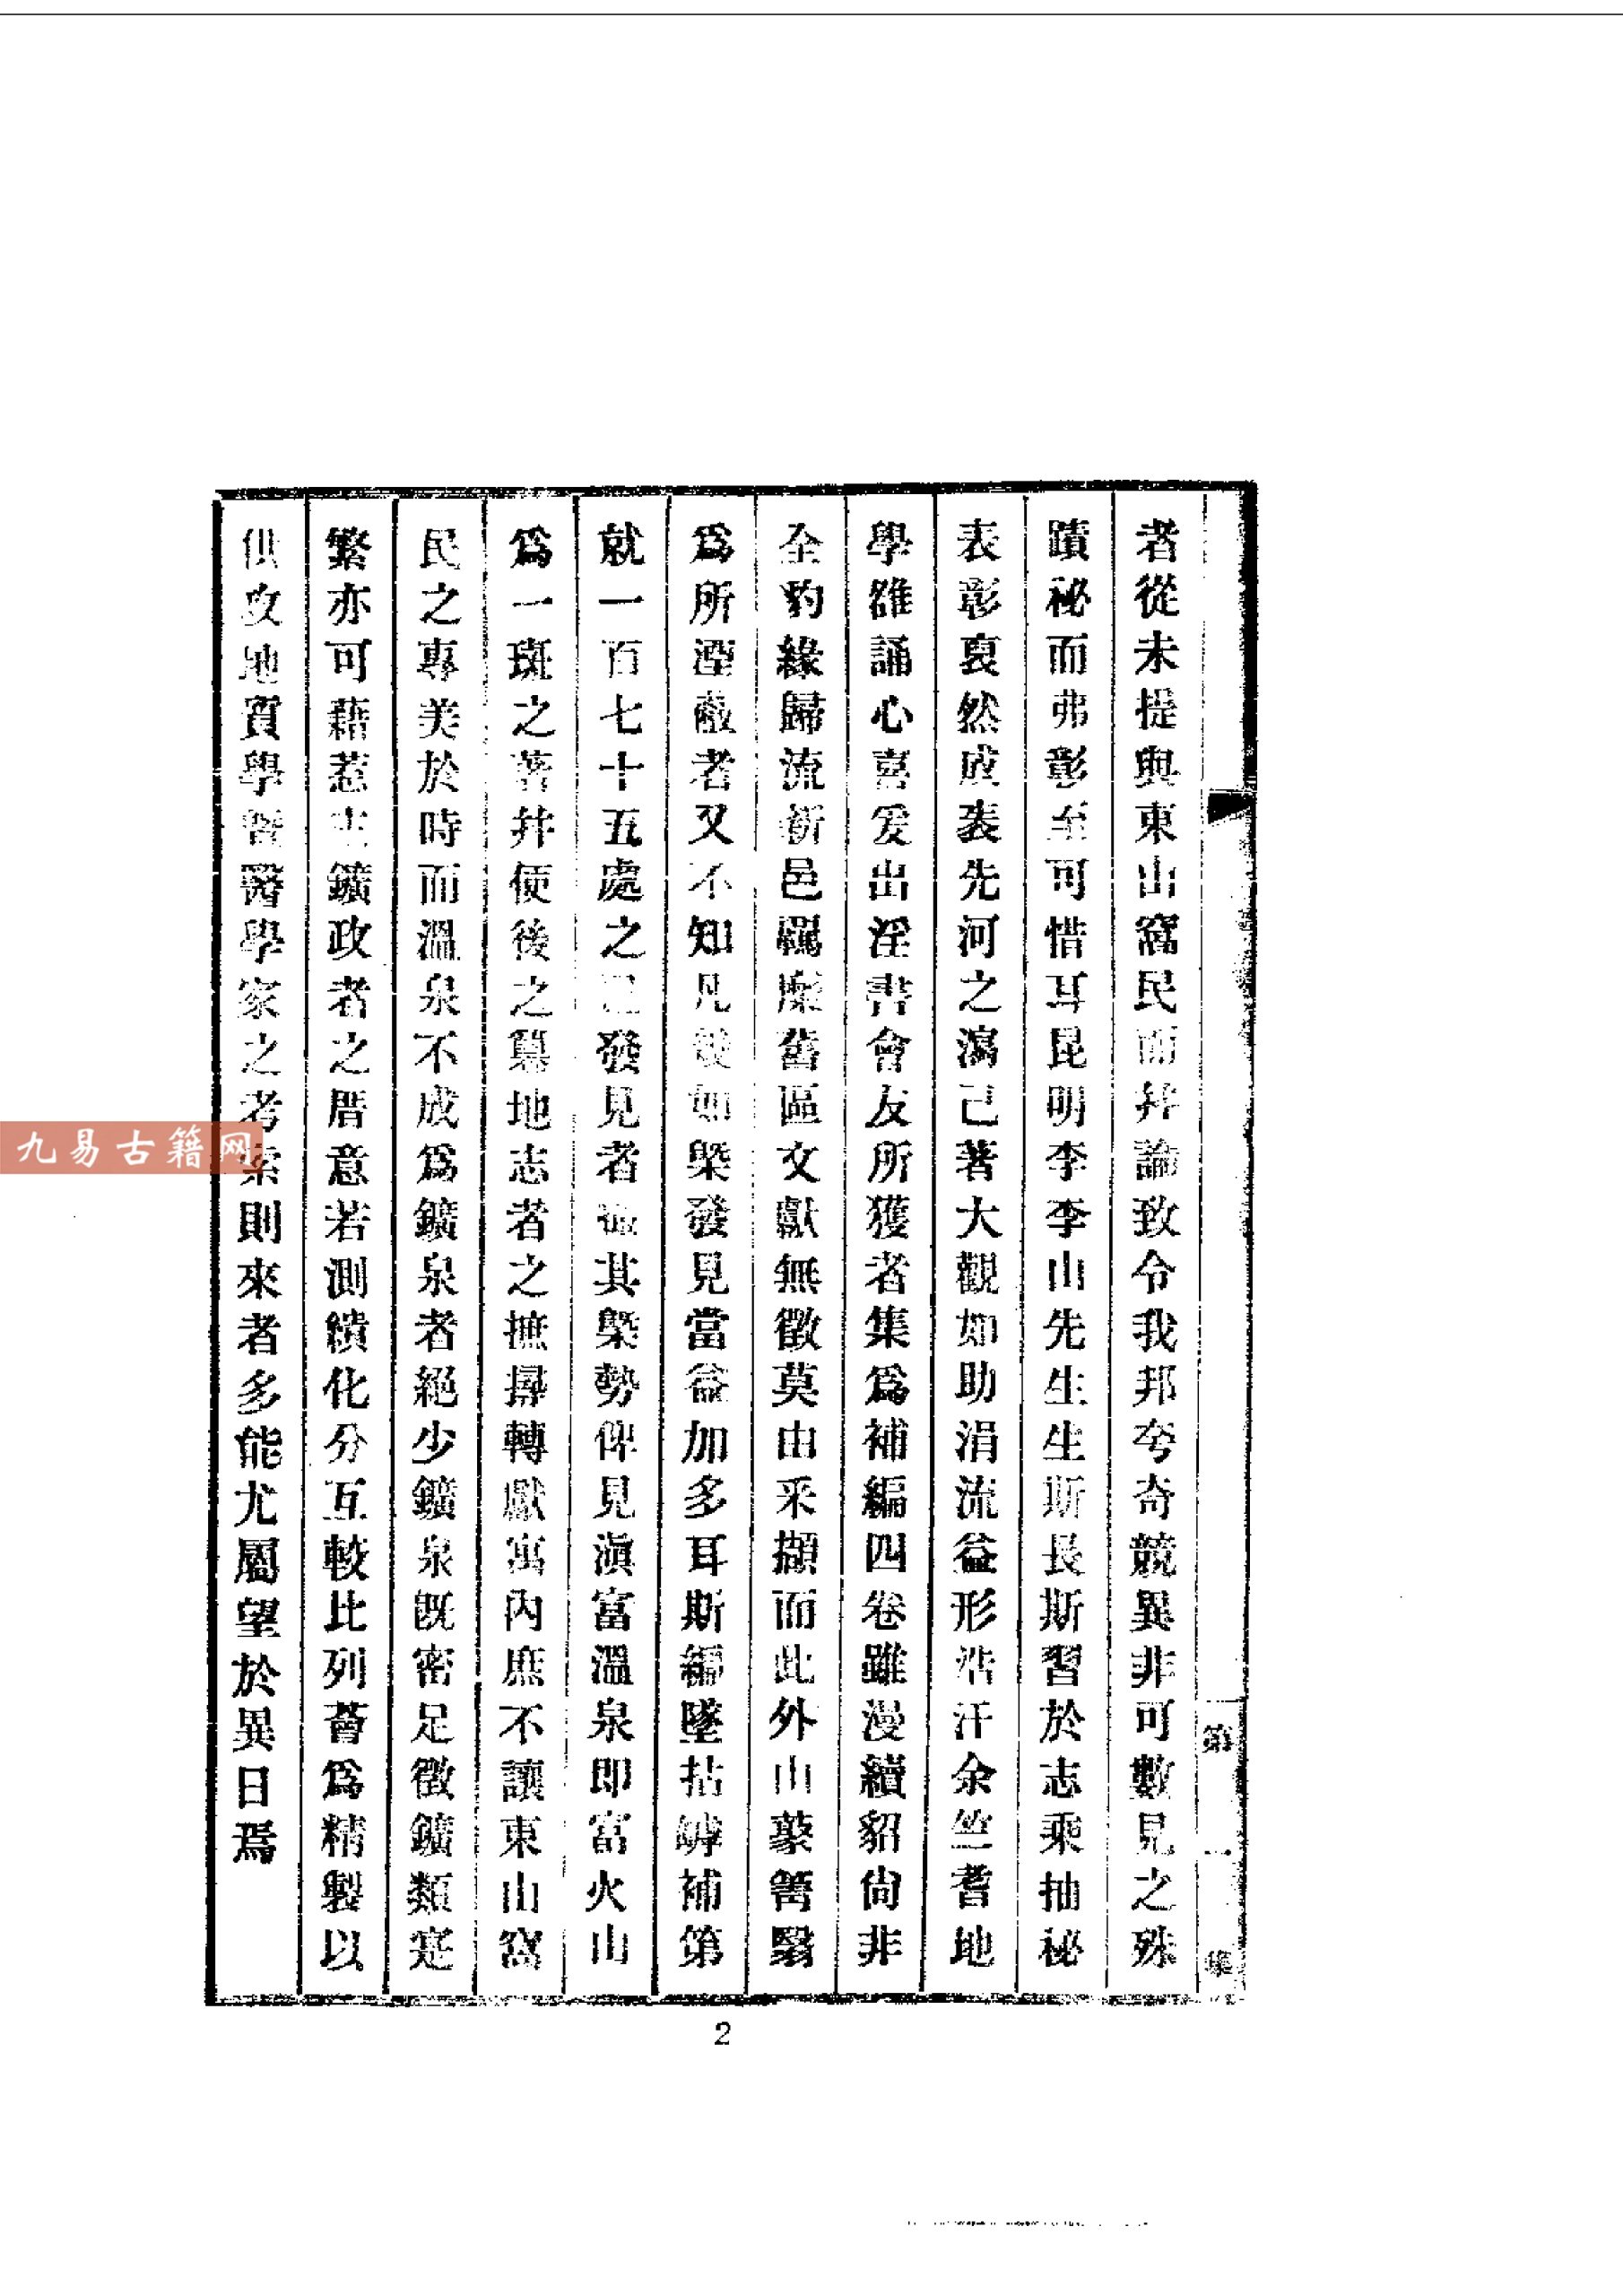 者從未提與東山窩民而幷論致令我邦夸奇競異非可數見之殊
蹟祕而弗彰至可惜耳昆明李李山先生生斯長斯習於志乘抽祕
表彰裒然成袠先河之瀉已著大觀如助涓流益形浩汗余竺耆地
學雒誦心喜爰出淫書會友所獲者集爲補編四卷雖漫續貂尙非
全豹緣歸流新邑羈縻舊區文獻無徵莫由采擷而此外山藜篱翳
爲所湮蔽者又不知凡幾如槩發見當益加多耳斯編墜拈罅補第
就一百七十五處之已發見者撮其槩勢俾見滇富溫泉即富火山
爲一斑之著幷便後之纂地志者之摭撏轉獻寓內庶不讓東山窩
民之專美於時而溫泉不成爲鑛泉者絕少鑛泉旣密足徵鑛類寔
繁亦可藉惹主鑛政者之厝意若測繢化分互較比列薈爲精製以
供攻地質學曁醫學家之考索則來者多能尤屬望於異日焉
第一集
2
九易古籍网